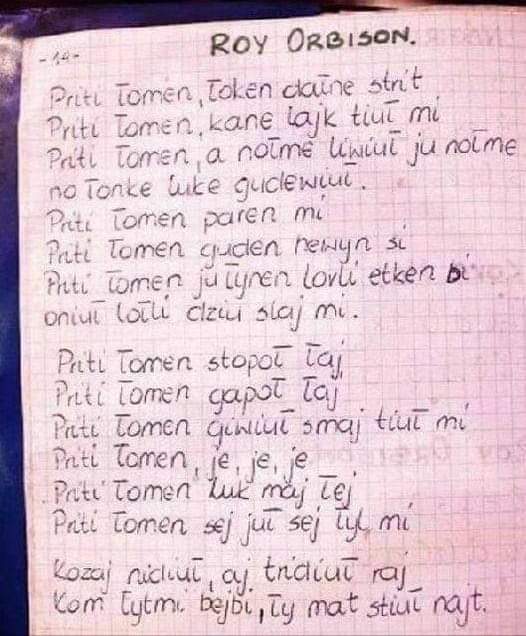 -14-
ROY ORBISON.
Priti łomen, łoken dałne strit
Priti łomen, kane lajk tiuł mi
Priti łomen, a nołme liwiuł ju nołme
no łonke luke gudewiuł.
Priti łomen paren mi
Priti łomen guden hewyn si
Priti łomen ju łynen lovli etken bi
oniuł lołli dziu slaj mi.
Priti łomen stopoł łaj
Priti łomen gapoł łaj
Priti łomen giwiuł smaj tiuł mi
Priti łomen, je, je, je
Priti łomen luk maj łej
Priti łomen sej juł sej łyl mi
Kozaj nidiuł, aj tridiuł raj
Kom łytmi bejbi, ły mat stiuł najt.